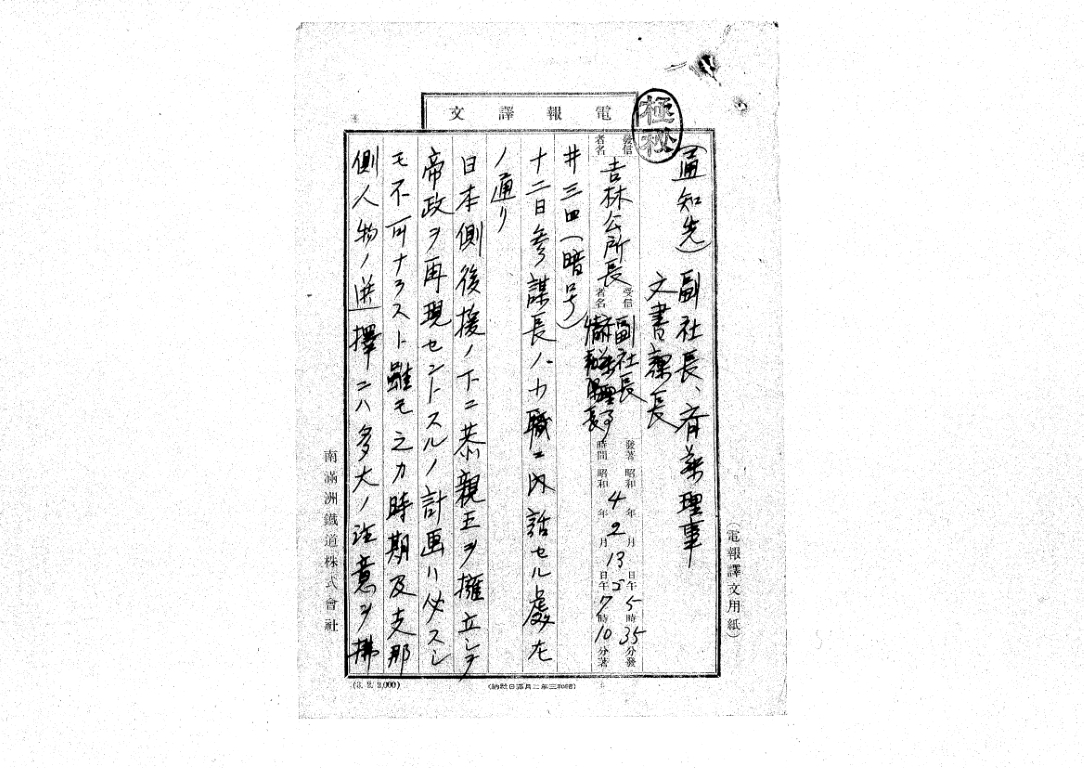 極秘
電報譯文
(電報譯文用紙)
(通知先) 副社長、斉藤理事
文書課長
發信者名 吉林公所長
受信者名 副社長
發著時間 昭和4年2月13日午后5時35分發
昭和 年 月 日午 7時10分著
井三四(暗号)
十二日参謀長ハ小職ニ内話セル處左
ノ通リ
日本側後援ノ下ニ恭親王ヲ擁立シテ
帝政ヲ再現セントスルノ計画ハ必スシ
モ不可ナラスト雖モ之カ時期及支那
側人物ノ選擇ニハ多大ノ注意ヲ拂
南滿洲鐵道株式會社
(3. 2. 2,000)
(昭和三年二月 日納)